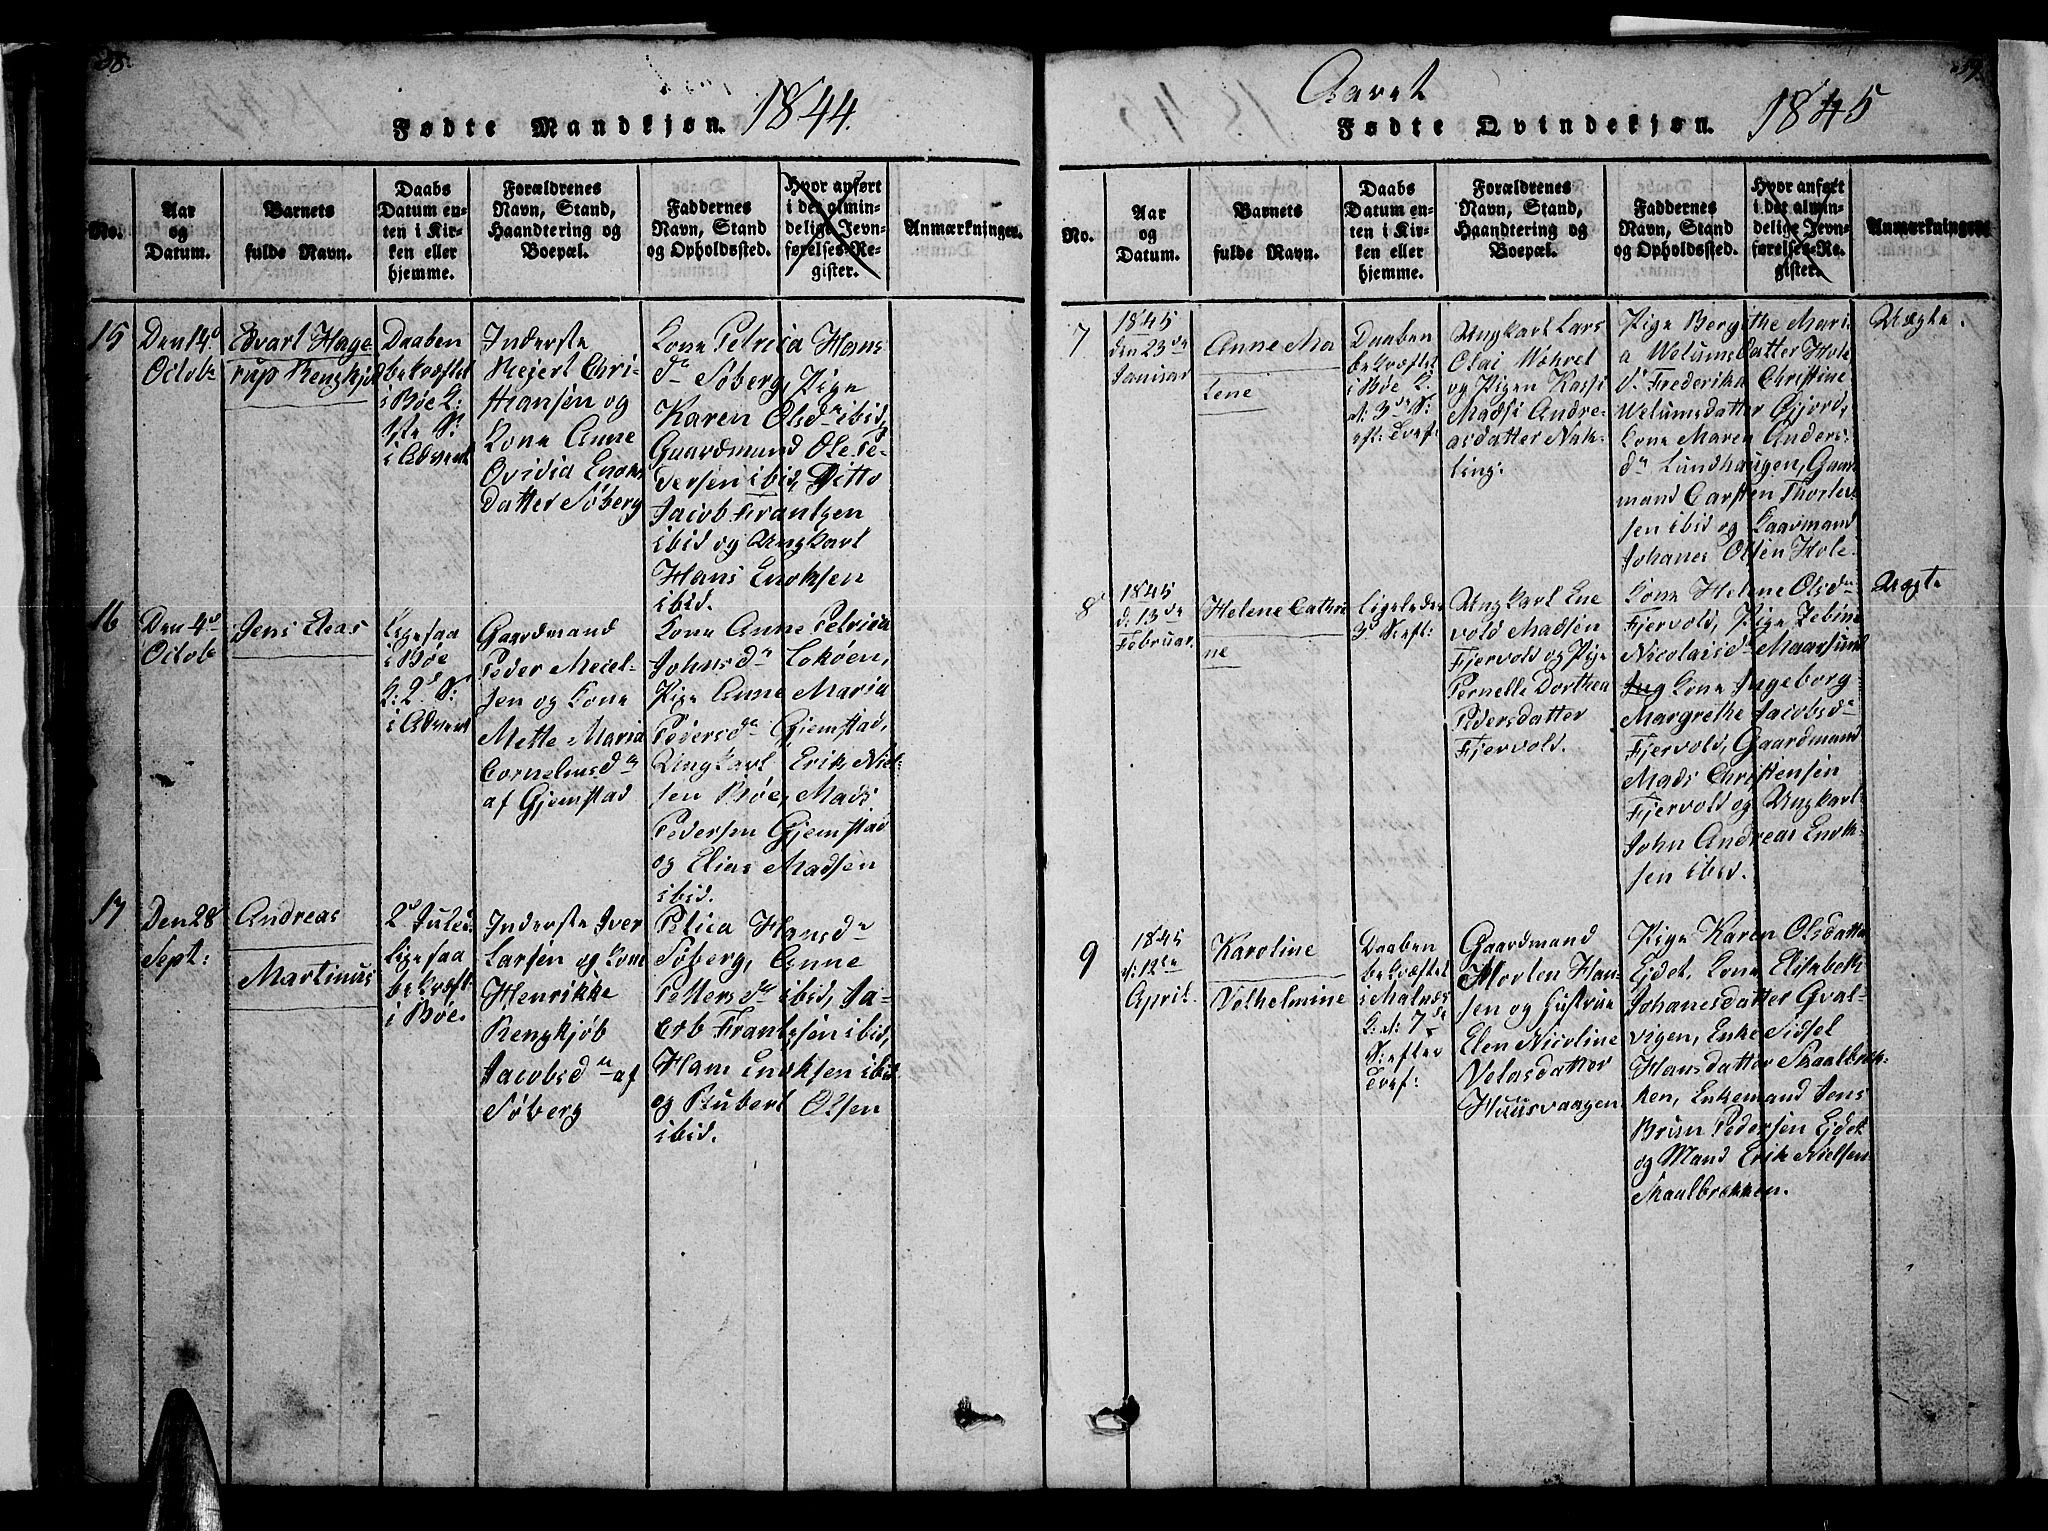 38.
Fødte Mandkjøn. 1844.
No.
Aar
og
Datum.
Barnets
fulde Navn.
Daabs
Datum en-
ten i Kir-
ken eller
hjemme.
Forældrenes
Navn, Stand,
Haandtering og
Boepæl.
Faddernes
Navn, Stand
og Opholdssted.
Hvor anført
i det almin-
delige Jevn-
førelses-Re-
gister.
Anmærkninger.
15
Den 14d
Octobr
Edvart Hage-
rup Rengkjøb
Daaben
bekræftet
i Bøe K:
1ste S:
i Advent
Inderste
Meiert Chri-
stiansen og
Kone Anne
Ovidia Enoks
datter Søberg
Kone Petricia Hans
dr Søberg, Pige
Karen Olsdr ibid,
Gaardmand Ole Pe-
dersen ibid, Ditto
Jacob Frantzen
ibid og Ungkarl
Hans Enoksen
ibid.
16
Den 4d
Octobr
Jens Elias
Ligesaa
i Bøe
K: 2d S:
i Advent
Gaardmand
Peder Meiel-
sen og Kone
Mette Maria
Corneliusdr
af Gjemstad
Kone Anne Petricia
Johnsdr Lokøen,
Pige Anne Maria
Pedersdr Gjemstad,
Ungkarl Erik Niel-
sen Bøe, Mads
Pedersen Gjemstad
og Elias Madsen
ibid.
17
Den 28
Sept:
Andreas
Martinus
2d Juled.
Ligesaa
bekræft:
i Bøe
Inderste Iver
Larsen og Kone
Henrikke
Rengkjøb
Jacobsdr af
Søberg
Petrica Hansdr
Søberg, Anne
Pettersdr ibid, Ja-
cob Frantzsen ibid,
Hans Enoksen ibid
og Rubert Olsen
ibid.
39.
Aaret
Fødte Qvindekjøn. 1845
No.
Aar
og
Datum.
Barnets
fulde Navn.
Daabs
Datum en-
ten i Kir-
ken eller
hjemme.
Forældrenes
Navn, Stand,
Haandtering og
Boepæl.
Faddernes
Navn, Stand
og Opholdssted.
Hvor anført
i det almin-
delige Jevn-
førelses-Re-
gister.
Anmærkninger.
7
1845
den 23de
Januar
Anne Ma
lene
Daaben
bekræftet
i Bøe K.
d: 3de S:
eft: Tref:
Ungkarl Lars
Olai
og Pigen Kassi
Madsi Andre-
asdatter Nök-
ling:
Pige Bergithe Mari-
a Welumsdatter Hole
Frederika Christine
Welumsdatter Gjørd,
Kone Maren Anders
dr Lundhaugen, Gaar
mand Carsten Thorler-
sen ibid og Gaarmand
Johanes Olsen Hole.
Uægte.
8
1845
d: 13de
Februar.
Helene Cathri
ne
Ligeledes
3d S: eft:
Ungkarl Ene
vold Madsen
Fjervold og Pige
Pernelle Dorthea
Pedersdatter
Fjervold.
Kone Helene Olsdr
Fjervold, Pige Zebine
Nicolaisdr Maarsund
Kone Ingeborg
Margrethe Jacobsdr
Fjervold, Gaardmand
Mads Christensen
Fjervold og Ungkarl
John Andreas Enok-
sen ibid.
Uægte
9
1845
d: 12te
April.
Karoline
Volhelmine
Daaben
bekræftet
i Malnæs
K: d: 7de
S: efter
Tref:
Gaardmand
Morten Han-
sen og Hustrue
Elen Nicoline
Velasdatter
Huusvaagen
Pige Karen Olsdatter
Eidet, Kone Elisabeth
Johanesdatter Qval-
vigen, Enke Sidsel
Hansdatter Skaalbræk-
ken, Enkemand Jens
Bruun Pedersen Eidet
og Mand Erik Nielsen
Skaalbrækken.